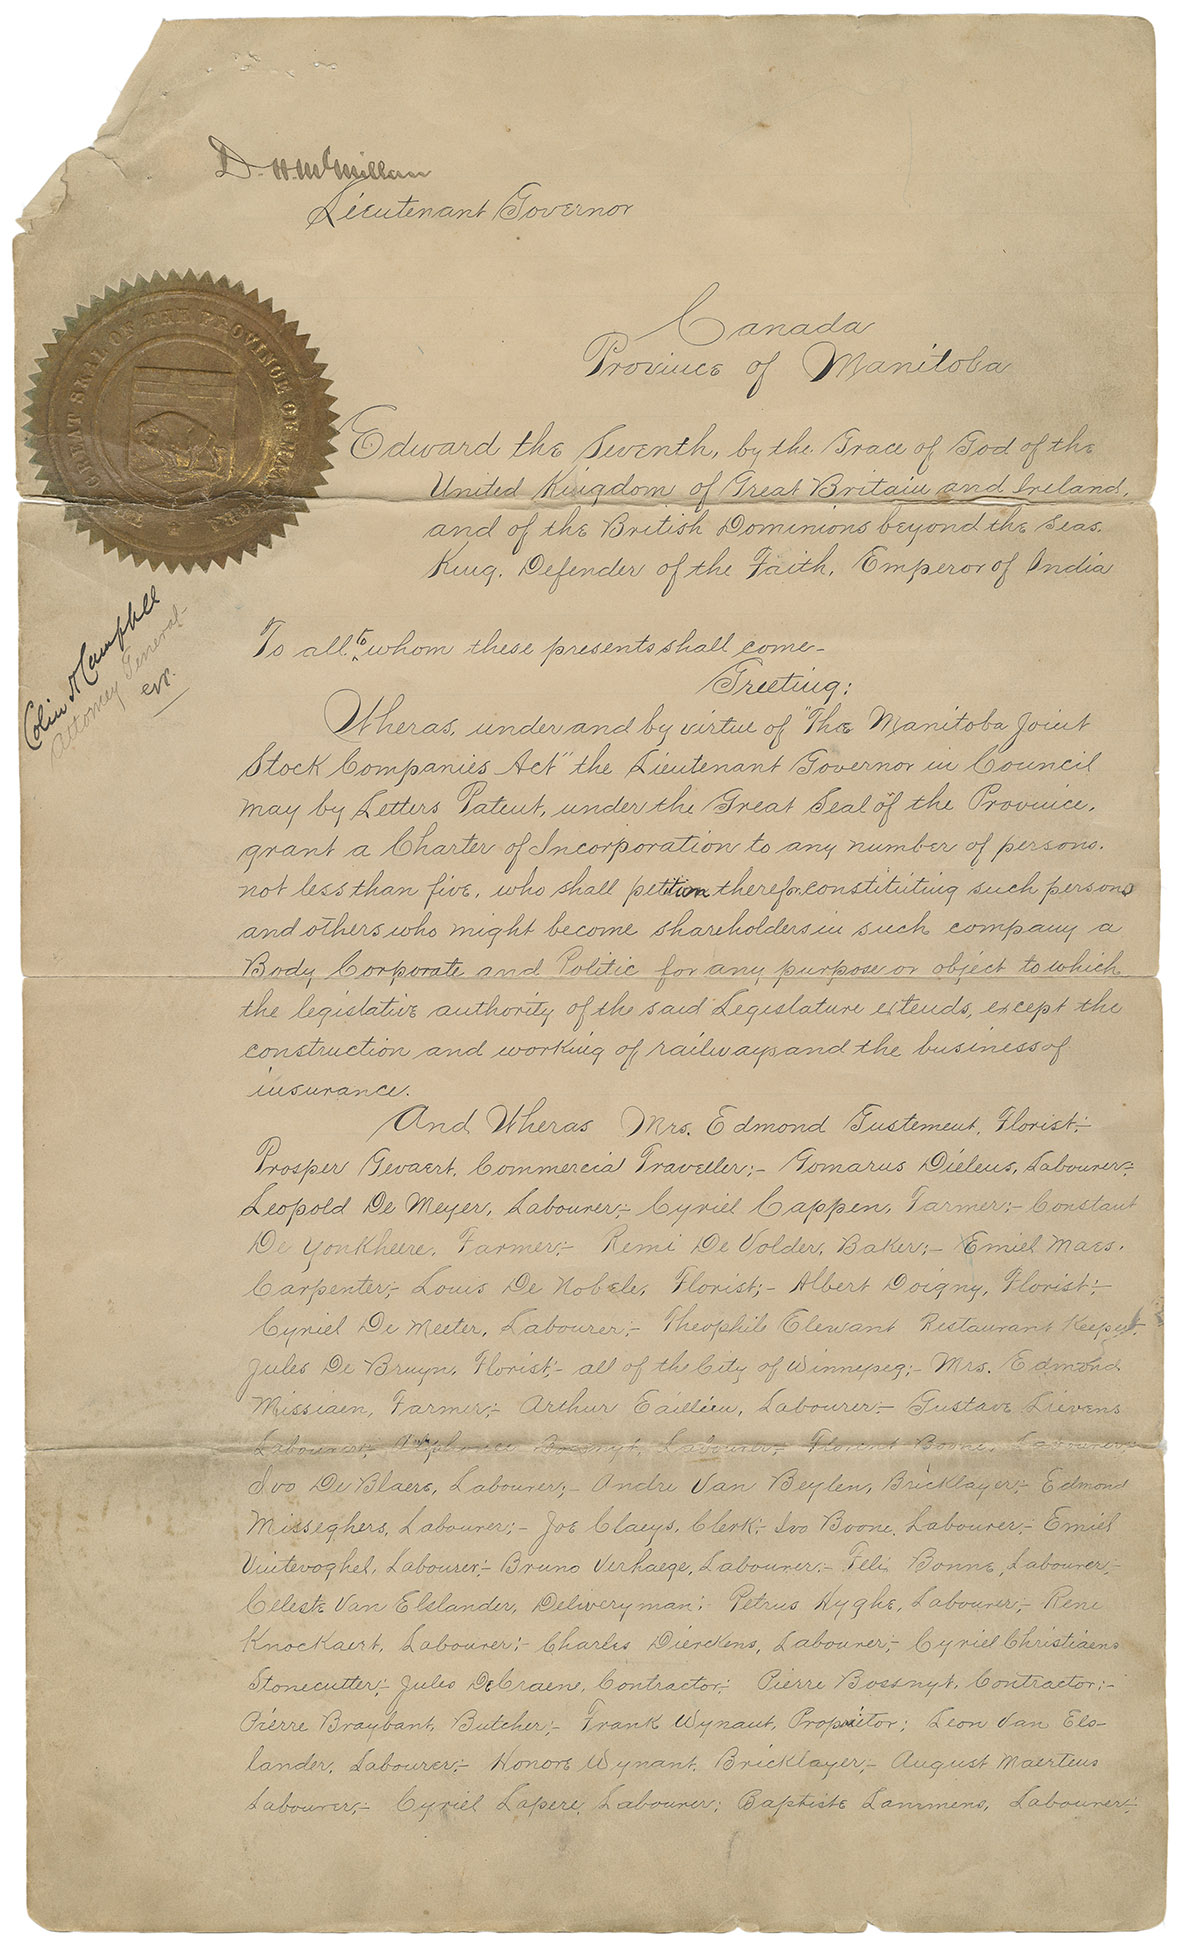 D. H. McMillan
Lieutenant Governor
GREAT SEAL OF THE PROVINCE OF
Canada
Province of Manitoba
Edward the Seventh, by the Grace of God of the
United Kingdom of Great Britain and Ireland,
and of the British Dominions beyond the Seas.
King, Defender of the Faith, Emperor of India
Colin H Campbell
Attorney General
To all to whom these presents shall come-
Greeting:
Wheras, under and by virtue of "The Manitoba Joint
Stock Companies Act" the Lieutenant Governor in Council
may by Letters Patent, under the Great Seal of the Province,
grant a Charter of Incorporation to any number of persons.
not less than five, who shall petition therefor constituting such persons
and others who might become shareholders in such company a
Body Corporate and Politic for any purpose or object to which
the legislative authority of the said Legislature extends, except the
construction and working of railways and the business of
insurance.
And Wheras Mrs. Edmond Gustement, Florist;-
Prosper Gevaert, Commercial Traveller;- Gomarus Dieleus, Labourer;-
Leopold De Meyer, Labourer;- Cyriel Cappen, Farmer;- Constant
De Yonkheere, Farmer;- Remi De Volder, Baker;- Emiel Maes,
Carpenter;- Louis De Nobele, Florist;- Albert Doigny, Florist;-
Cyriel De Meeter, Labourer;- Theophile Elewant Restaurant Keeper.
Jules De Bruyn, Florist;- all of the City of Winnepeg;- Mrs. Edmond
Missiaen, Farmer;- Arthur Caillieu, Labourer;- Gustave Lievens
Labourer;- Labourer;- Florent Boone, Labourer;-
Ivo De Blaere, Labourer;- Andre Van Beylen, Bricklayer;- Edmond
Misseghers, Labourer;- Joe Claeys, Clerk;- Ivo Boone, Labourer;- Emiel
Vuitevoghel, Labourer;- Bruno Verhaege, Labourer;- Felix Bonne, Labourer;-
Celeste Van Elslander, Deliveryman; Petrus Hyghe, Labourer;- Rene
Knockaert, Labourer;- Charles Dierckens, Labourer;- Cyriel Christiaens
Stonecutter;- Jules DeCraen, Contractor; Pierre Bossnyt, Contractor;-
Pierre Braybant, Butcher;- Frank Wynant, Proprietor; Leon Van Els-
lander, Labourer;- Honore Wynant, Bricklayer;- August Maertens
Labourer;- Cyriel Lapere, Labourer; Baptiste Lammens, Labourer;-